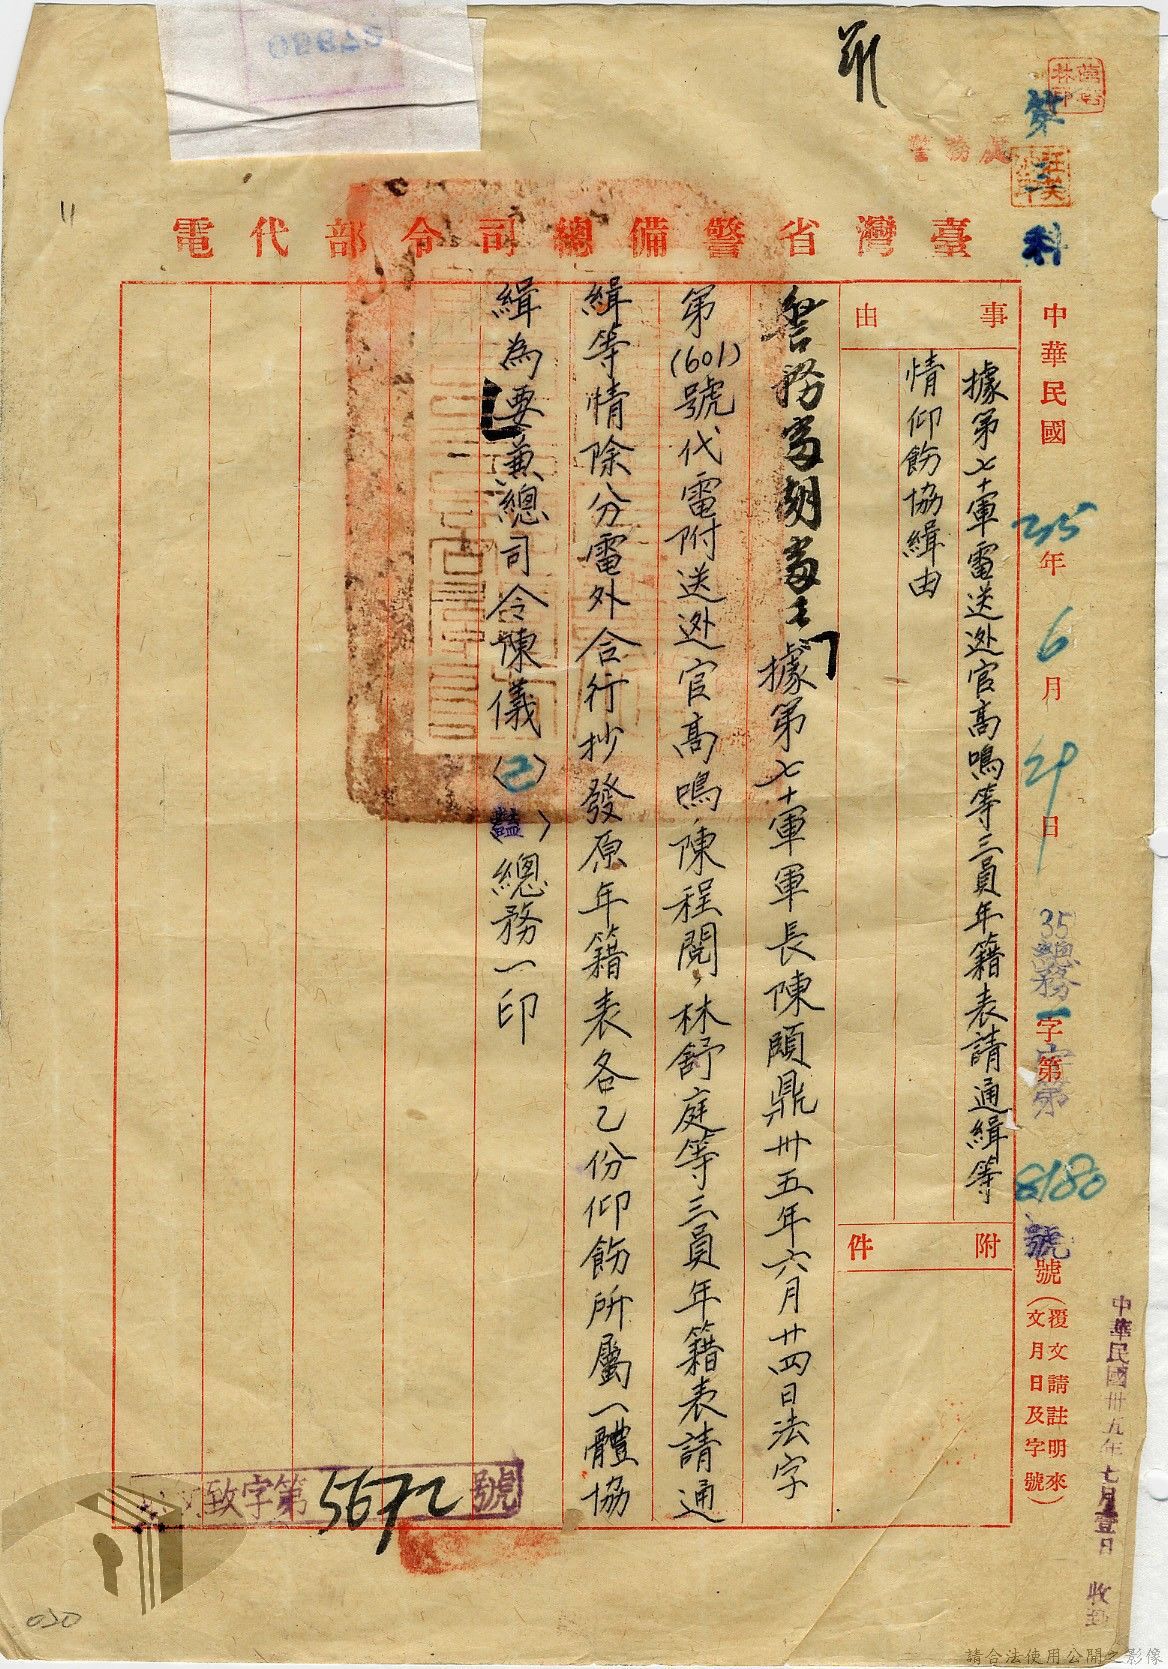 臺灣省警備總司令部代電
第三科
警務處
中華民國35年6月29日
35總務一字第8180號
(覆文請註明來文月日及字號)
事由
據第七十軍電送逃官高鳴等三員年籍表請通緝等
情仰飭協緝由
附件
警務處胡處長據第七十軍軍長陳頤鼎卅五年六月廿四日法字
第(601)號代電附送逃官高鳴、陳程閱、林舒庭等三員年籍表請通
緝等情除分電外合行抄發原年籍表各乙份仰飭所屬一體協
緝為要兼總司令陳儀(己)(豔)總務一印
致字第5672號
中華民國卅五年七月壹日 收到
030
請合法使用公開之影像